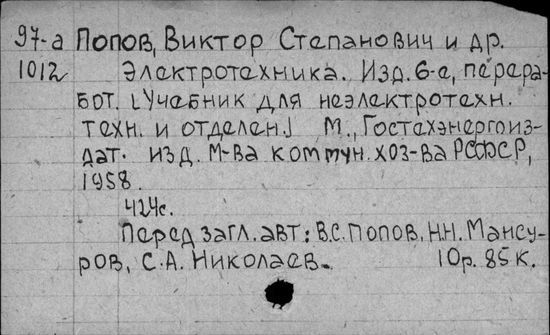 97-а Попов, Виктор Степанович и др.
1012 Электротехника. Изд. 6-е, перера-
бот. [Учебник для неэлектротехн.
техн. и отделен.] М., Гостехэнергоиз-
дат. изд. М-ва коммун. хоз-ва РСФСР,
1958.
424с.
Перед загл. авт: В.С. Попов, Н.Н. Мансу-
ров, С.А. Николаев. 10р. 85к.